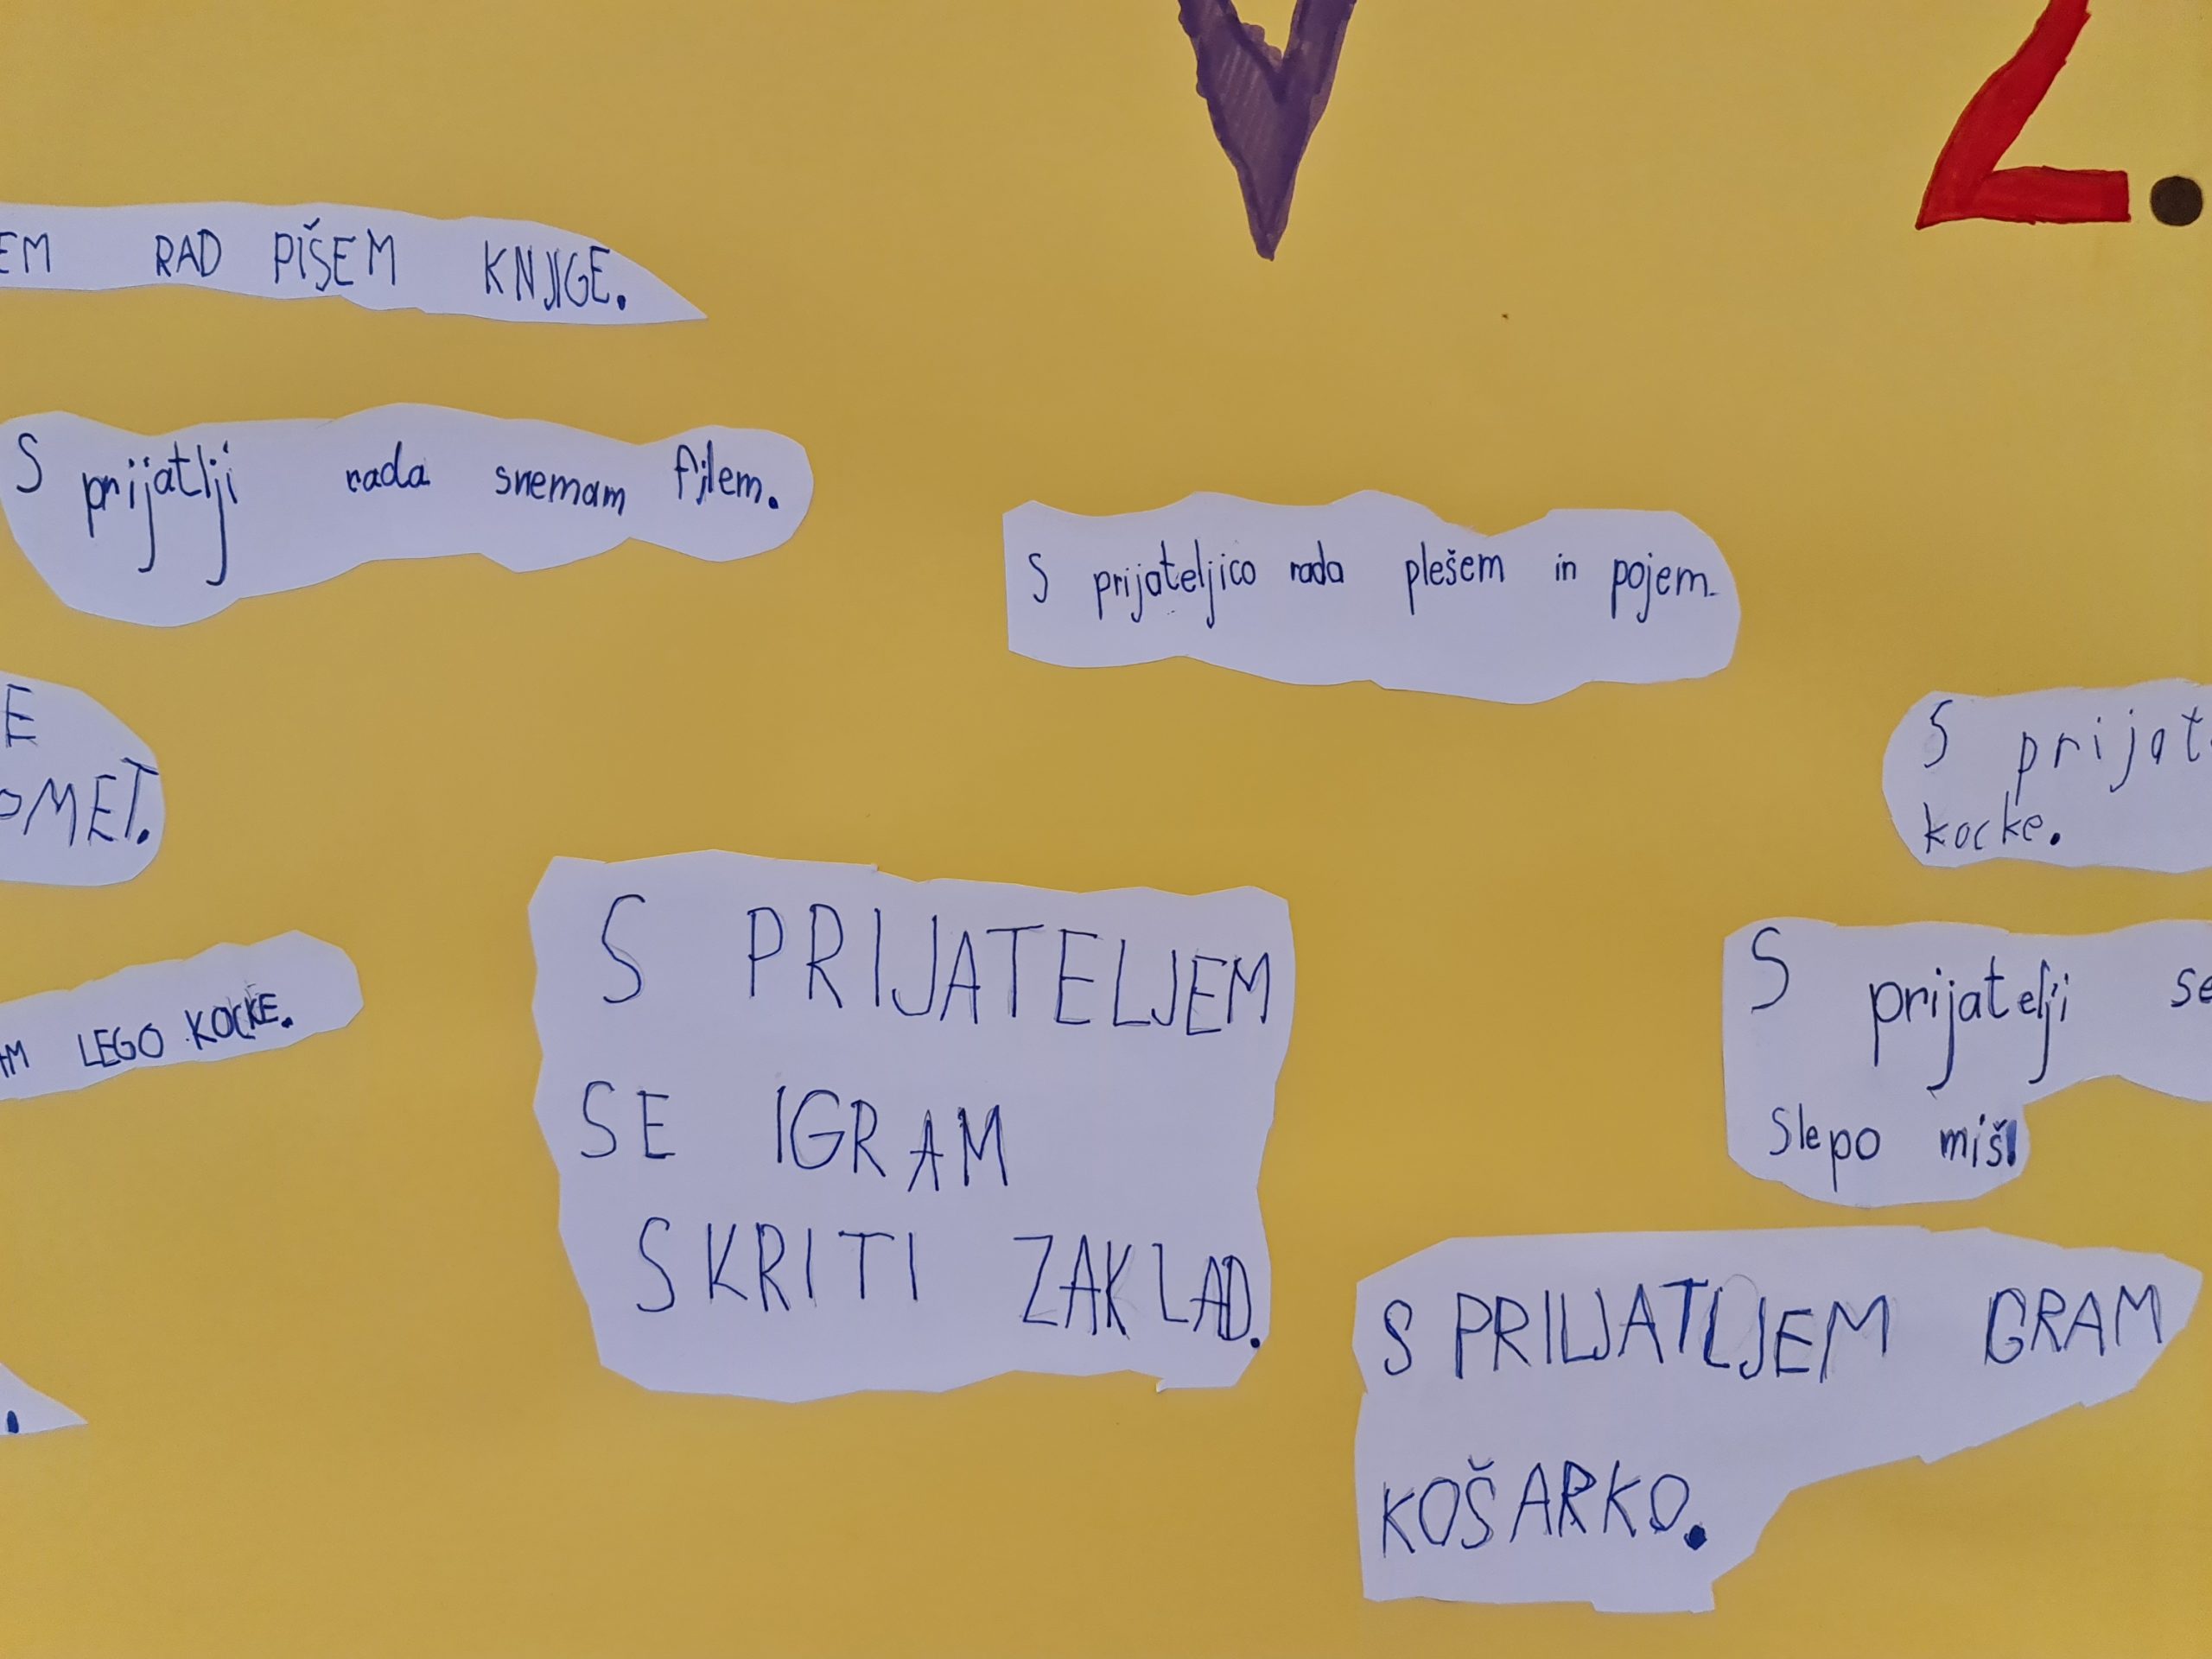 V 2.
EM RAD PIŠEM KNJIGE.
S prijatlji rada snemam filem.
S prijateljico rada plešem in pojem.
E
OMET.
S prijat
kocke.
AM LEGO KOCKE.
S PRIJATELJEM
SE IGRAM
SKRITI ZAKLAD.
S prijatelji se
Slepo miš
S PRILJATLJEM GRAM
KOŠARKO.